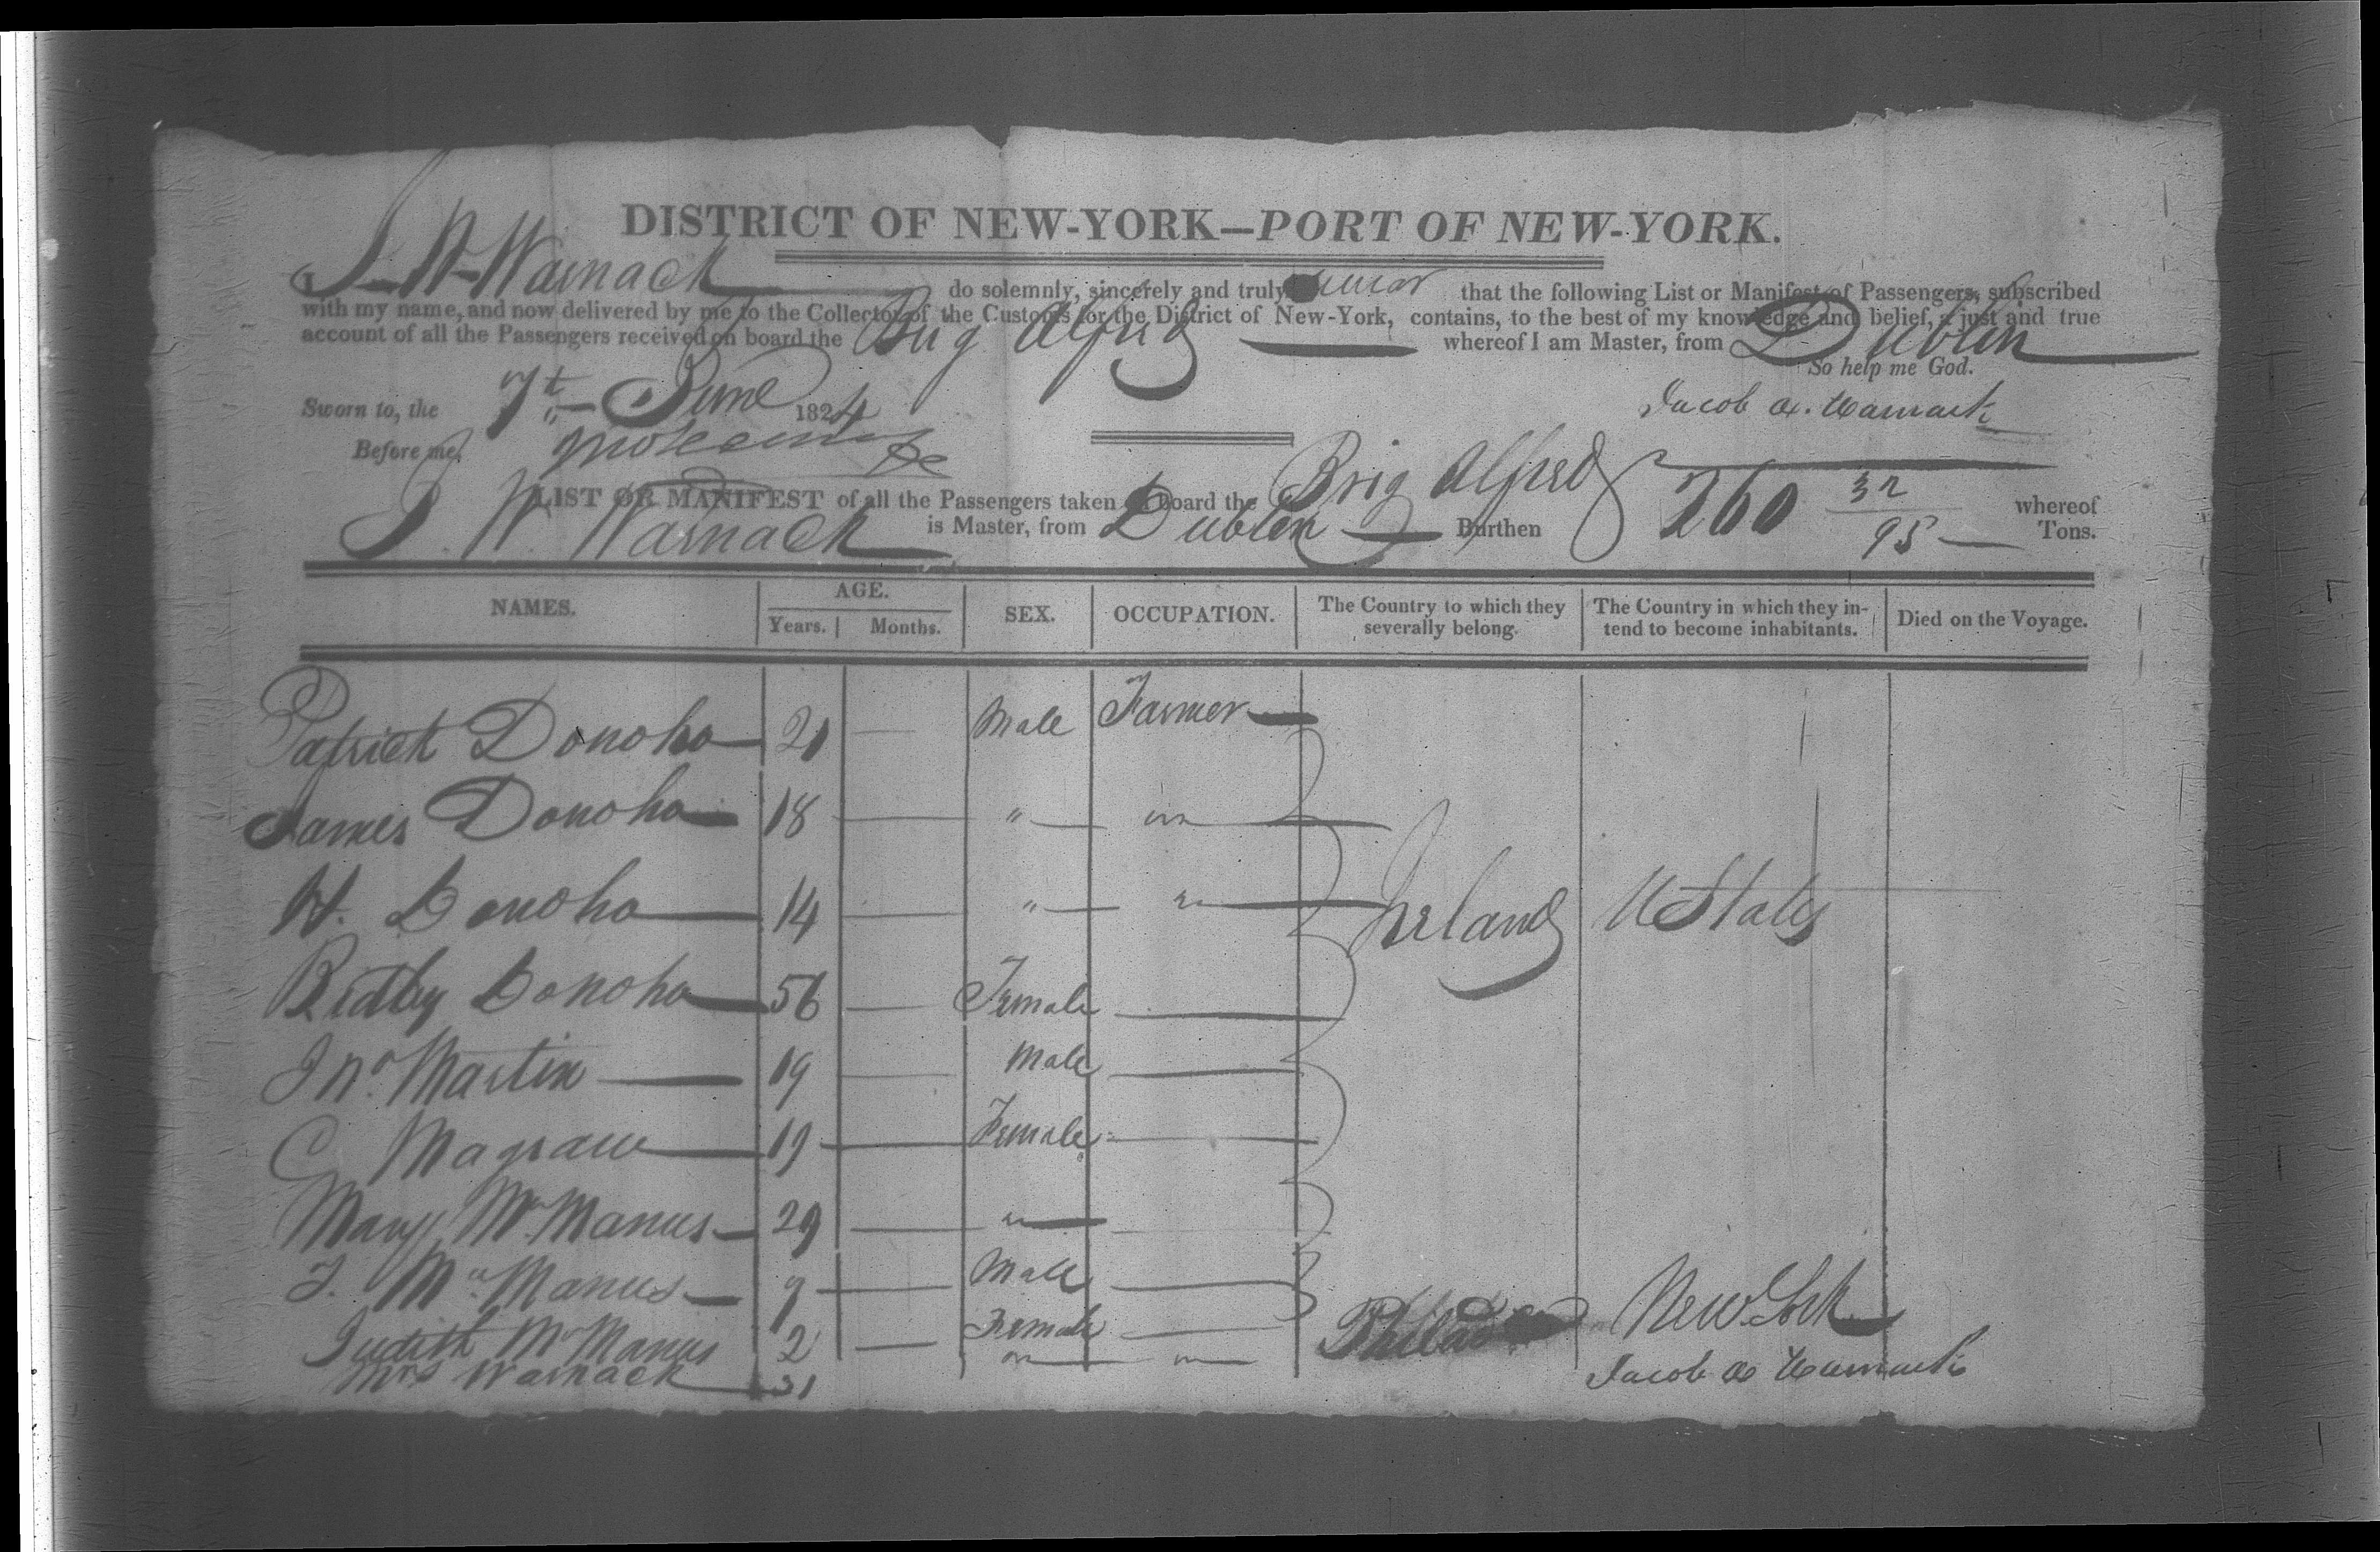 DISTRICT OF NEW-YORK—PORT OF NEW-YORK.
I J W Warnack do solemnly, sincerely and truly swear that the following List or Manifest of Passengers, subscribed
with my name, and now delivered by me to the Collector of the Customs for the District of New-York, contains, to the best of my knowledge and belief, a just and true
account of all the Passengers received on board the Brig Alfred whereof I am Master, from Dublin
So help me God.
Sworn to, the 7th June 1824 Jacob W. Warnack
Before me,
LIST OR MANIFEST of all the Passengers taken on board the Brig Alfred whereof
J. W. Warnack is Master, from Dublin Burthen 260 32/95 Tons.
NAMES. AGE. Years. Months. SEX. OCCUPATION. The Country to which they severally belong. The Country in which they intend to become inhabitants. Died on the Voyage.
Patrick Donoho 21 — Male Farmer
James Donoho 18 — " "
W. Donoho 14 — " " Ireland U States
Bidby Donoho 56 — Female —
Jno. Martin 19 — Male —
C Magraw 19 — Female —
Mary Mc.Manus 29 — " —
J. Mc.Manus 9 — Male —
Judith Mc Manus 2 — Female — Philad New York
Mrs Warnack 31 " " Jacob W Warnack